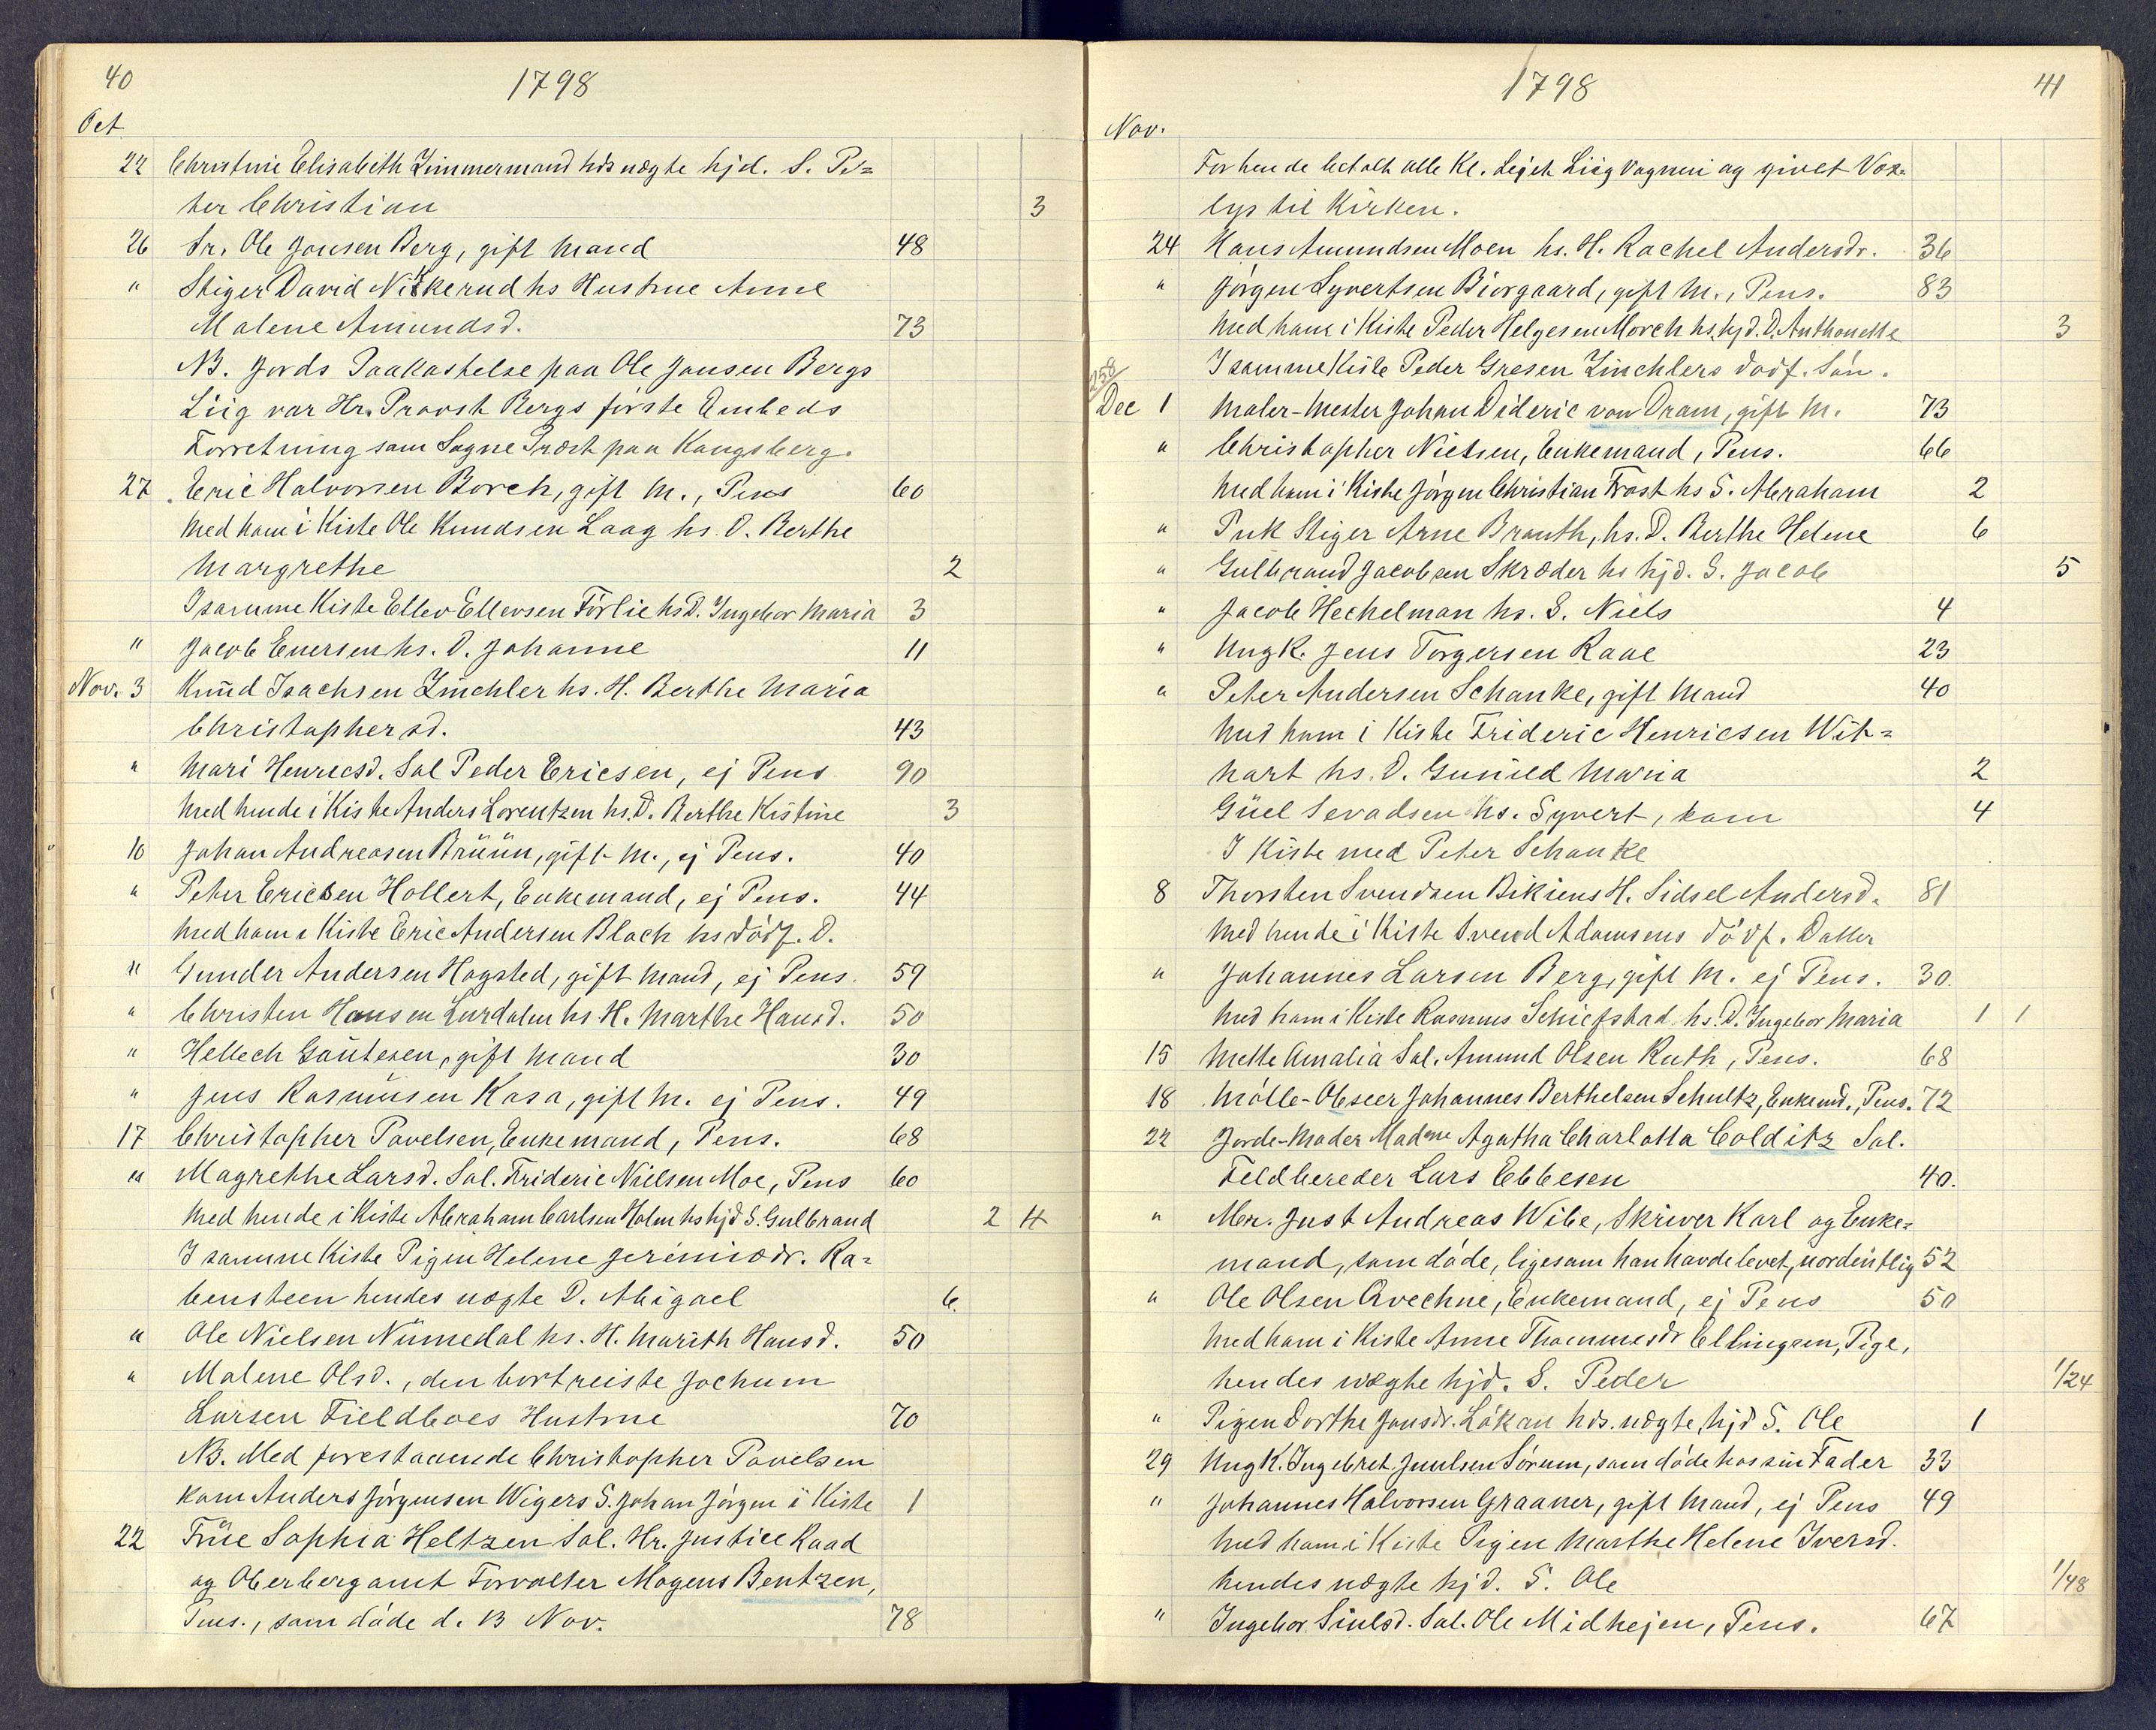 40 1798
Oct
22 Christine Elisabeth Zimmermand hds uægte hjd. S. Pe=
ter Christian 3
26 Sr. Ole Jonsen Berg, gift Mand 48
" Stiger David Nikkerud hs Hustrue Anne
Malene Amundsd. 73
NB. Jords Paakastelse paa Ole Jonsen Bergs
Liig var Hr. Provst Bergs første Embeds
Forretning som Sogne Præst paa Kongsberg.
27 Eric Halvorsen Borch, gift M., Pens 60
Med ham i Kiste Ole Knudsen Laag hs. D. Berthe
Margrethe 2
I samme Kiste Ellev Ellevsen Førlie hs D. Ingebor Maria 3
" Jacob Enersen hs. D. Johanne 11
Nov. 3 Knud Isachsen Zinchler hs. H. Berthe Maria
Christophersd. 43
" Mari Henricsd. Sal Peder Ericsen, ej Pens 90
Med hende i Kiste Anders Lorentzen hs. D. Berthe Kistine 3
10 Johan Andreasen Brüün, gift M., ej Pens. 40
" Peter Ericsen Hollert, Enkemand, ej Pens. 44
Med ham i Kiste Eric Andersen Block hs dödf. D.
" Gunder Andersen Hogsted, gift Mand, ej Pens. 59
" Christen Hansen Lurdalen hs. H. Marthe Hansd. 50
" Hellech Gautesen, gift Mand 30
" Jens Rasmusen Kasa, gift M. ej Pens. 49
17 Christopher Povelsen, Enkemand, Pens. 68
" Magrethe Larsd. Sal. Frideric Nielsen Moe, Pens 60
Med hende i Kiste Abraham Carlsen Holm hs hjd S. Gulbrand 2 4
I samme Kiste Pigen Helene Jeremiædr. Ra=
bensteen hendes uægte D. Abigael 6.
" Ole Nielsen Numedal hs. H. Marith Hansd. 50
" Malene Olsd., den bortreiste Jochum
Larsen Fieldboes Hustrue 70
NB. Med forestaaende Christopher Povelsen
kom Anders Jørgensen Wigers S. Johan Jørgen i Kiste 1
22 Frue Sophia Heltzen Sal. Hr. Justice Raad
og Oberbergamt Forvalter Mogens Bentzen,
Pens., som døde d. 13 Nov. 78
1798 41
Nov.
For hende betalt alle Kl. Leiet Liigvognen og givet Vox=
lys til Kirken.
24 Hans Amundsen Moen hs. H. Rachel Andersdr. 36
" Jørgen Syvertsen Biørgaard, gift M., Pens. 83
Med ham i Kiste Peder Helgesen Morch hs. hjd. D. Anthonette 3
I samme Kiste Peder Gresen Zinchlers dødf. Søn.
258
Dec 1 Maler-Mester Johan Dideric von Dram, gift M. 73
" Christopher Nielsen, Enkemand, Pens. 66
Med ham i Kiste Jørgen Christian Frost hs S. Abraham 2
" Puk Stiger Arne Brauth, hs. D. Berthe Helene 6
" Gulbrand Jacobsen Skræder hs hjd. S. Jacob 5
" Jacob Hechelman hs. S. Niels 4
" Ungk. Jens Torgersen Raae 23
" Peter Andersen Schanke, gift Mand 40
Med ham i Kiste Frideric Henricsen Wit=
hart hs. D. Gunild Maria 2
Güel Sevadsen hs. Syvert, kom 4
I Kiste med Peter Schanke
8 Thorsten Svendsen Bikiens H. Sidsel Andersd. 81
Med hende i Kiste Svend Adamsens dödf. Datter
" Johannes Larsen Berg, gift M. ej Pens. 30.
Med ham i Kiste Rasmus Schiefstad hs. D. Ingebor Maria 1 1
15 Mette Amalia Sal. Amund Olsen Ruth, Pens. 68
18 Mølle-Obseer Johannes Berthelsen Schultz, Enkemd., Pens. 72
22 Jorde-Moder Madme Agatha Charlotta Colditz Sal.
Feldbereder Lars Ebbesen 40.
" Mr. Just Andreas Wibe, Skriver Karl og Enke=
mand, som døde, ligesom han havde levet, uordentlig 52
" Ole Olsen Qvechne, Enkemand, ej Pens 50
Med ham i Kiste Anne Thommesdr Ellingsen, Pige,
hendes uægte hjd. S. Peder 1/24
" Pigen Dorthe Jonsdr. Løkan hds. uægte, hjd S. Ole 1
29 Ung K. Ingebret Juulsen Sørum, som døde hos sin Fader 33
" Johannes Halvorsen Graaner, gift Mand, ej Pens 49
Med ham i Kiste Pigen Marthe Helene Iversd.
hendes uægte hjd. S. Ole 1/48
" Ingebor Siulsd. Sal. Ole Midhejen, Pens. 67